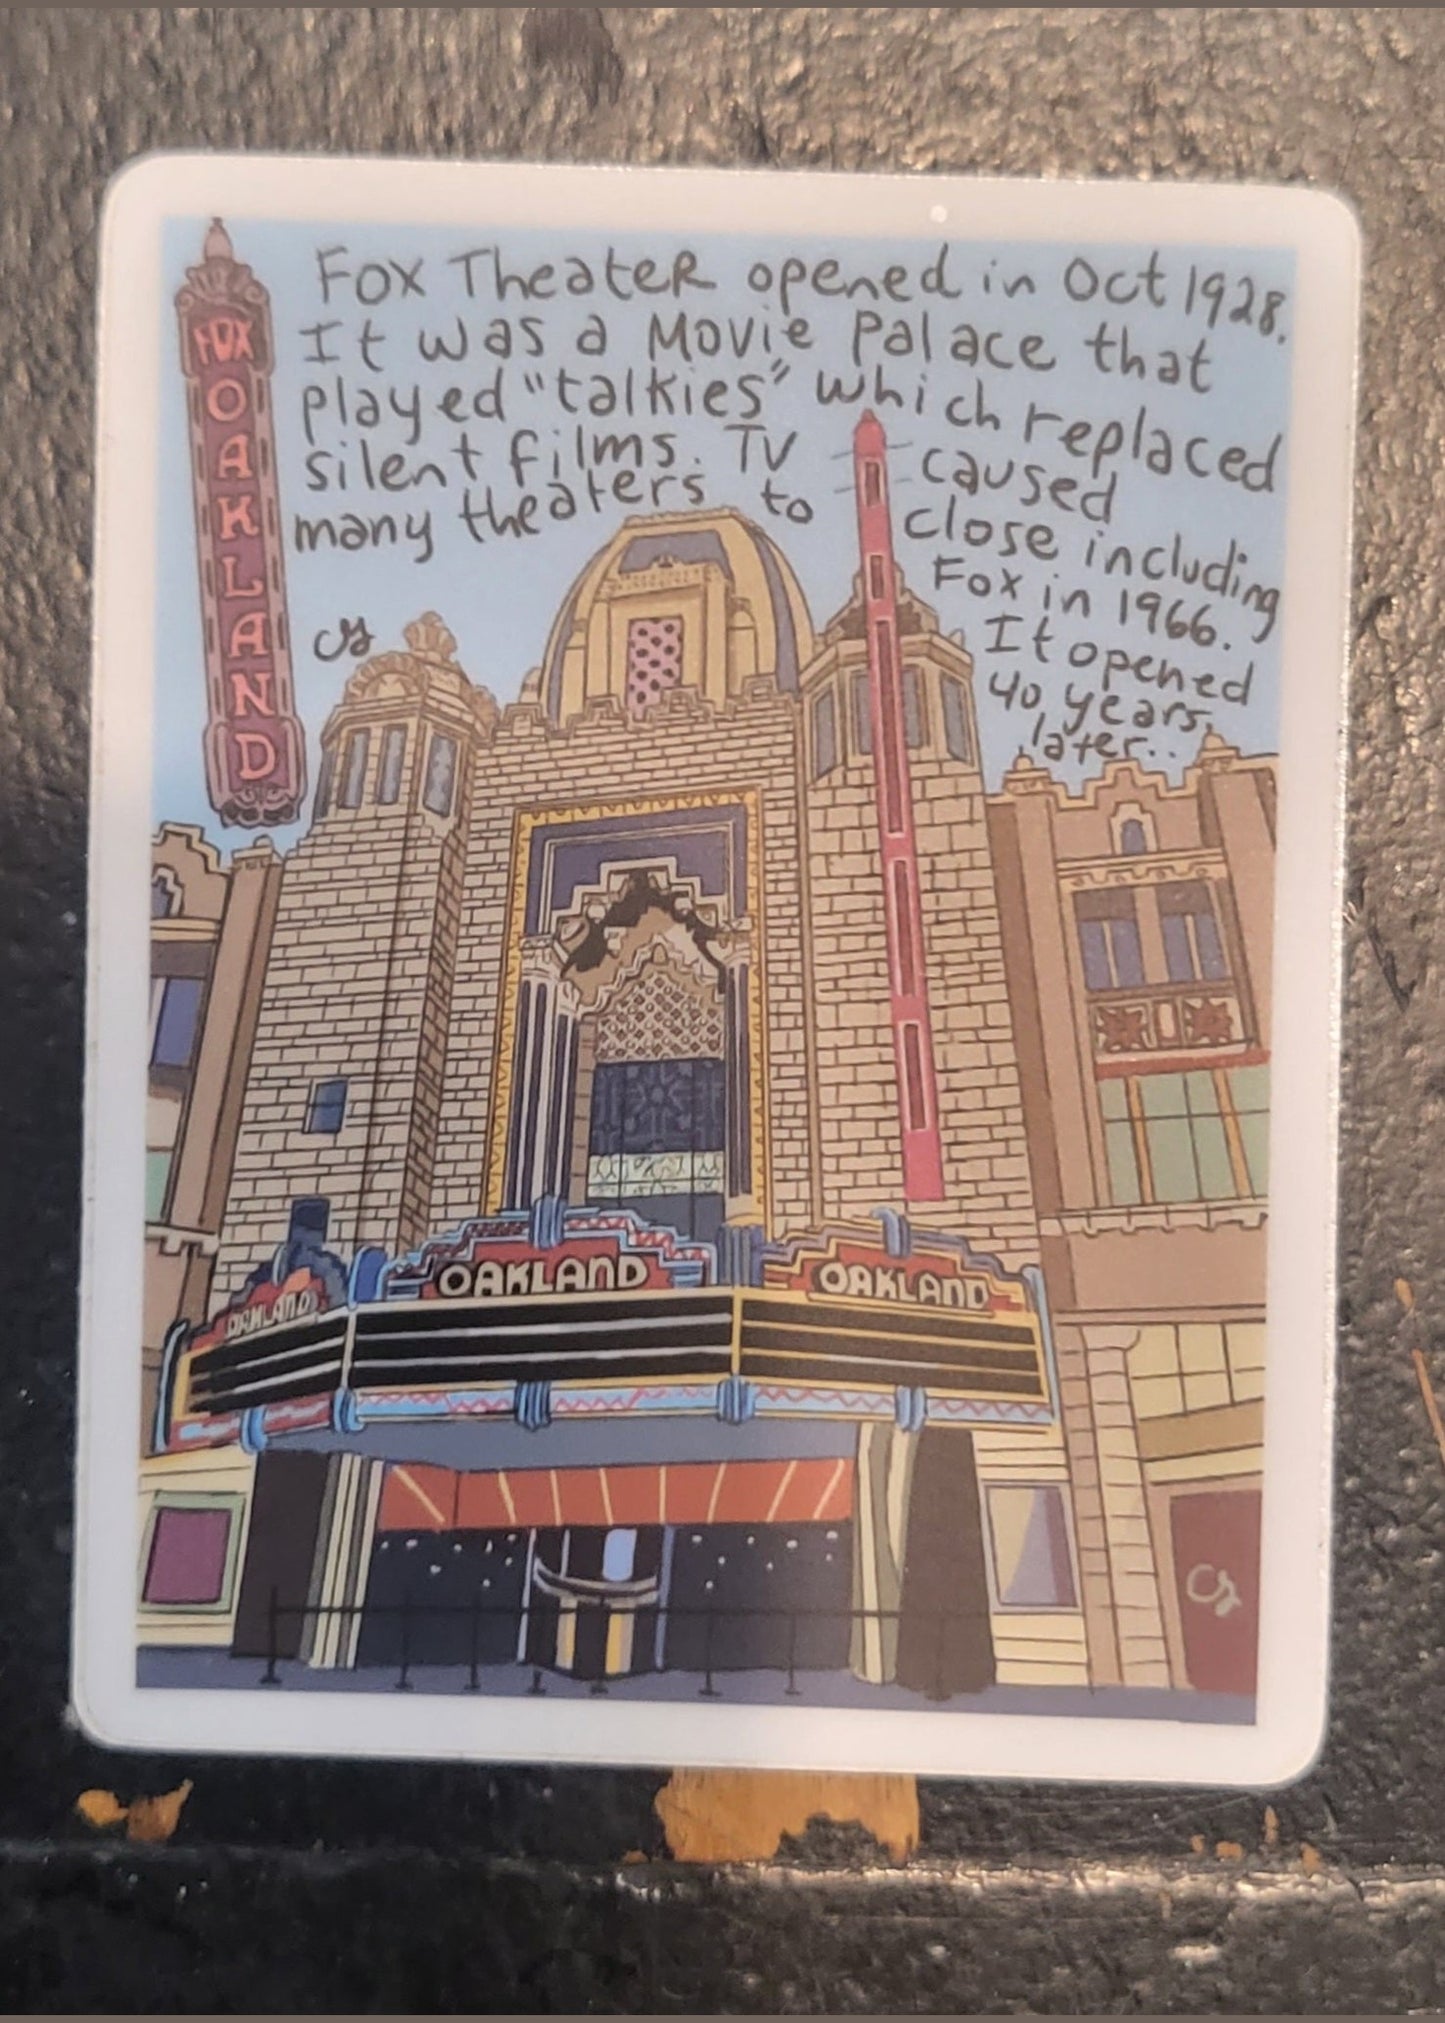 Fox Theater opened in Oct 1928.
It was a Movie Palace that
played "talkies" which replaced
silent films. TV caused
many theaters to close including
Fox in 1966.
It opened
40 years
later..
FOX
OAKLAND
cs
OAKLAND
OAKLAND
OAKLAND
cs